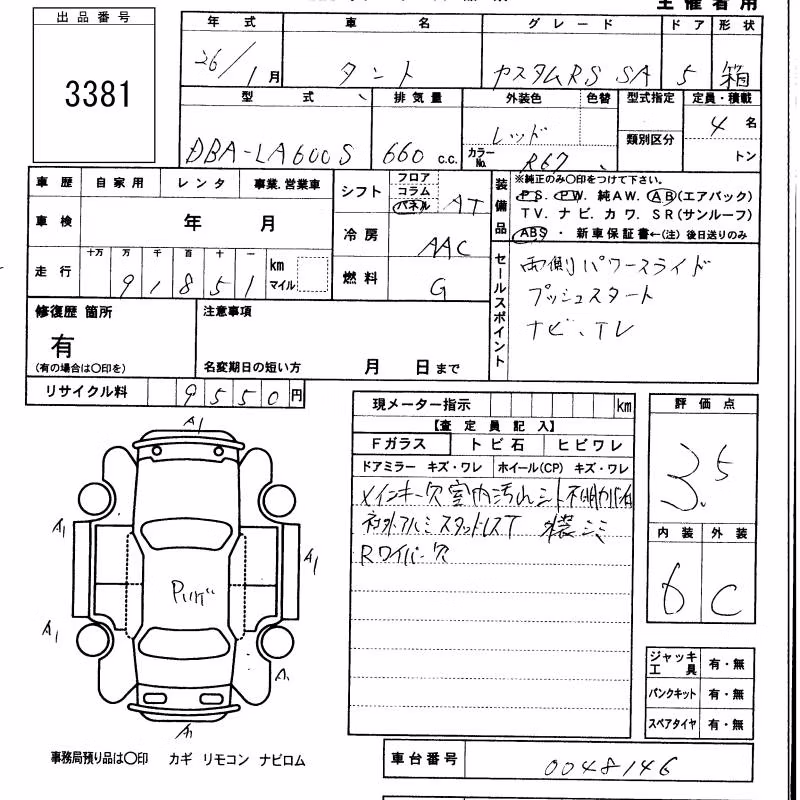 主催者用
出品番号
3381
年式 車名 グレード ドア 形状
26/1月 タント カスタムRS SA 5 箱
型式 排気量 外装色 色替 型式指定 定員・積載
DBA-LA600S 660 c.c. レッド 類別区分 4 名
カラーNo. R67 トン
車歴 自家用 レンタ 事業.営業車
車検 年 月
走行 十万 万 千 百 十 一
9 1 8 5 1 km マイル
シフト フロア コラム パネル AT
冷房 AAC
燃料 G
装備品
※純正のみ〇印をつけて下さい。
PS. PW. 純AW. AB(エアバック)
TV. ナビ. カワ. SR(サンルーフ)
ABS ・ 新車保証書←(注) 後日送りのみ
セールスポイント
両側パワースライド
プッシュスタート
ナビ、TV
修復歴 箇所
有
(有の場合は〇印を)
注意事項
名変期日の短い方 月 日まで
リサイクル料 9550円
現メーター指示 km
【査定員記入】
Fガラス トビ石 ヒビワレ
ドアミラー キズ・ワレ ホイール(CP) キズ・ワレ
メインキー欠 室内汚れ シト
社外アルミ スタッドレスT
Rワイパー欠
評価点
3.5
内装 外装
6 C
A1
A1
A1
A1
A1
Pいりグ
ジャッキ工具 有・無
パンクキット 有・無
スペアタイヤ 有・無
事務局預り品は〇印 カギ リモコン ナビロム
車台番号 0048146